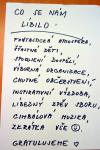 CO SE NÁM
LÍBILO:
FANTASTICKÁ ATMOSFÉRA,
ŠŤASTNÉ DĚTI,
SPOKOJENÍ DOSPĚLÍ,
VÝBORNÁ ORGANIZACE,
CHUTNÉ OBČERSTVENÍ,
INSPIRATIVNÍ VÝZDOBA,
LIBEZNÝ ZPĚV SBORU,
CIMBÁLOVÁ MUZIKA,
ZKRÁTKA VŠE
GRATULUJEME